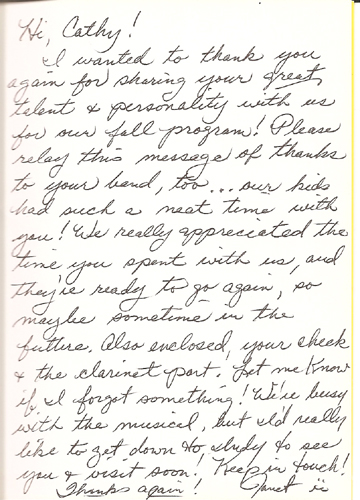 Hi, Cathy!
I wanted to thank you
again for sharing your great
talent & personality with us
for our fall program! Please
relay this message of thanks
to your band, too... our kids
had such a neat time with
you! We really appreciated the
time you spent with us, and
they're ready to go again, so
maybe sometime in the
future. Also enclosed, your check
& the clarinet part. Let me know
if I forgot something! We're busy
with the musical, but I'd really
like to get down to, to see
you & visit soon! Keep in touch!
Thanks again! Janet ü